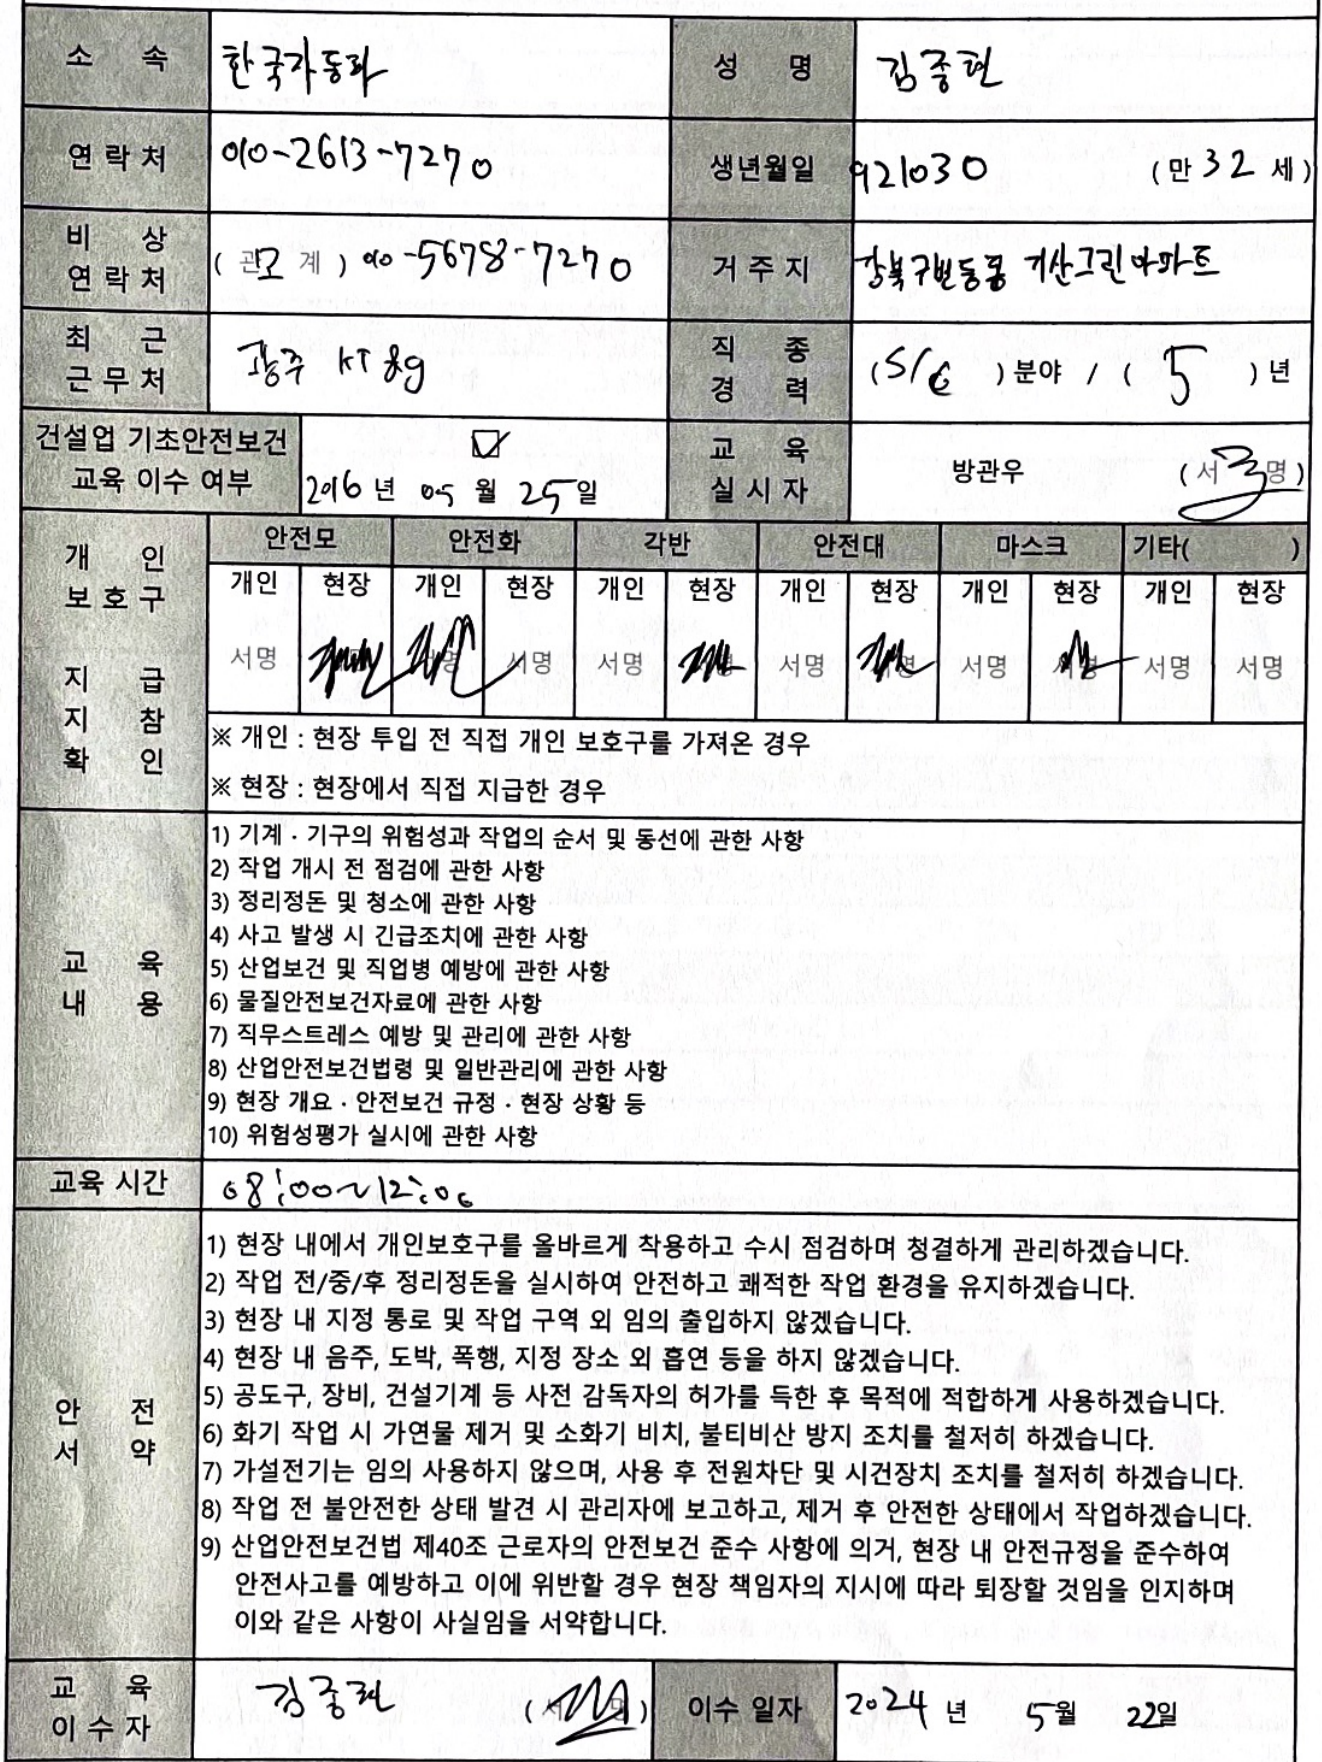 소 속 한국자동화 성 명 김종현
연락처 010-2613-7270 생년월일 921030 (만 32 세)
비 상
연락처 (관 모 계) 010-5678-7270 거주지 강북구번동 기산그린아파트
최 근
근무처 광주 KT&g 직 종
경 력 (S/C) 분야 / ( 5 ) 년
건설업 기초안전보건
교육 이수 여부 ☑
2016 년 05 월 25 일 교 육
실시자 방관우 (서명)
개 인
보호구
지 급
지 참
확 인
안전모 안전화 각반 안전대 마스크 기타( )
개인 현장 개인 현장 개인 현장 개인 현장 개인 현장 개인 현장
서명 서명 서명 서명 서명 서명 서명 서명 서명 서명 서명 서명
※ 개인 : 현장 투입 전 직접 개인 보호구를 가져온 경우
※ 현장 : 현장에서 직접 지급한 경우
교 육
내 용
1) 기계 · 기구의 위험성과 작업의 순서 및 동선에 관한 사항
2) 작업 개시 전 점검에 관한 사항
3) 정리정돈 및 청소에 관한 사항
4) 사고 발생 시 긴급조치에 관한 사항
5) 산업보건 및 직업병 예방에 관한 사항
6) 물질안전보건자료에 관한 사항
7) 직무스트레스 예방 및 관리에 관한 사항
8) 산업안전보건법령 및 일반관리에 관한 사항
9) 현장 개요 · 안전보건 규정 · 현장 상황 등
10) 위험성평가 실시에 관한 사항
교육 시간 08:00~12:00
안 전
서 약
1) 현장 내에서 개인보호구를 올바르게 착용하고 수시 점검하며 청결하게 관리하겠습니다.
2) 작업 전/중/후 정리정돈을 실시하여 안전하고 쾌적한 작업 환경을 유지하겠습니다.
3) 현장 내 지정 통로 및 작업 구역 외 임의 출입하지 않겠습니다.
4) 현장 내 음주, 도박, 폭행, 지정 장소 외 흡연 등을 하지 않겠습니다.
5) 공도구, 장비, 건설기계 등 사전 감독자의 허가를 득한 후 목적에 적합하게 사용하겠습니다.
6) 화기 작업 시 가연물 제거 및 소화기 비치, 불티비산 방지 조치를 철저히 하겠습니다.
7) 가설전기는 임의 사용하지 않으며, 사용 후 전원차단 및 시건장치 조치를 철저히 하겠습니다.
8) 작업 전 불안전한 상태 발견 시 관리자에 보고하고, 제거 후 안전한 상태에서 작업하겠습니다.
9) 산업안전보건법 제40조 근로자의 안전보건 준수 사항에 의거, 현장 내 안전규정을 준수하여
안전사고를 예방하고 이에 위반할 경우 현장 책임자의 지시에 따라 퇴장할 것임을 인지하며
이와 같은 사항이 사실임을 서약합니다.
교 육
이수자 김종현 (서명) 이수 일자 2024 년 5월 22일